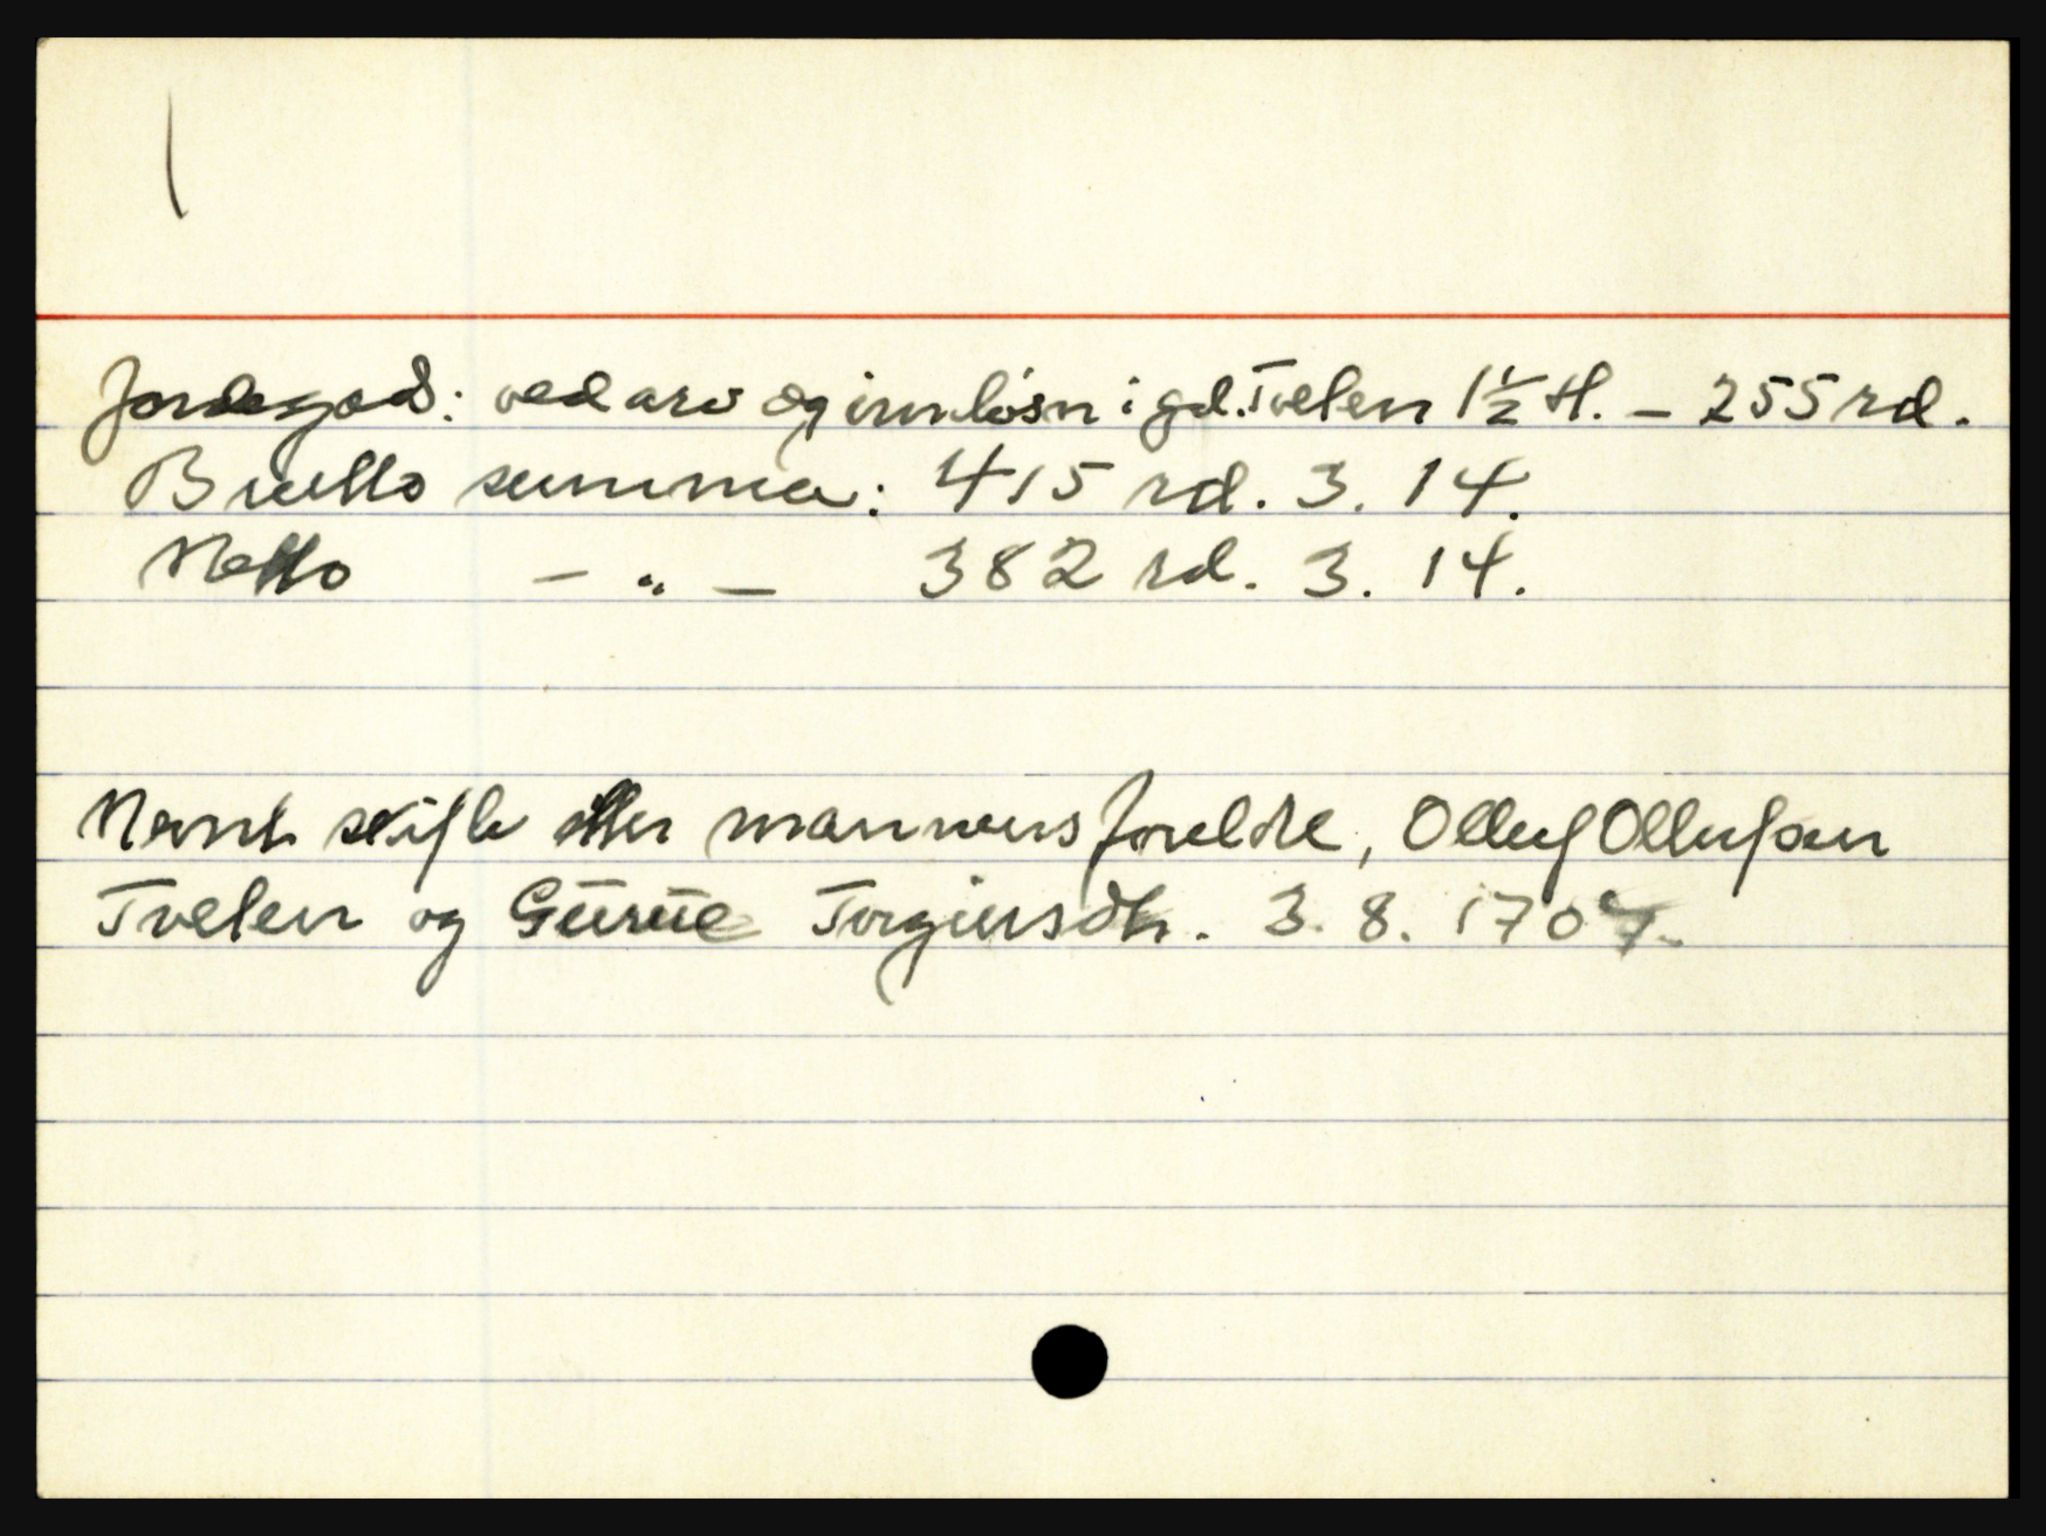 Jordegods: ved arv og innløsn i gd. Tvelen 1½ H. - 255 rd.
Brutto summa: 415 rd. 3. 14.
Netto - " - 382 rd. 3. 14.
Nemt skifte etter mannens foreldre, Olluf Ollufsen
Tvelen og Gurue Torgiersdtr. 3. 8. 1707.